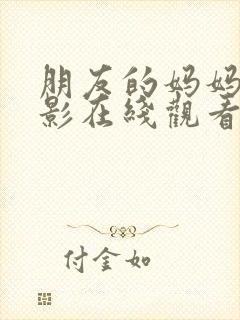 朋友的妈妈
影在线觀看
付金如